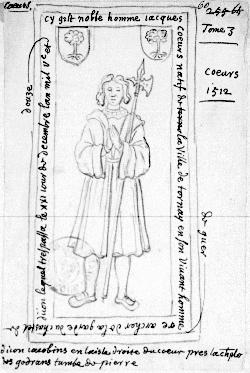 Coeurs.
Tome 3
Coeurs
1512
cy gist noble homme iacques
coeurs natif de la ville de tornay en son vivant homme
de guer
re archer de la garde du chastel de
diion lequel trespassa le xxi iour de decembre lan mil vc et
douze
diion iacobins en laisle droite du coeur pres la chplo
des godrans tumbe de pierre